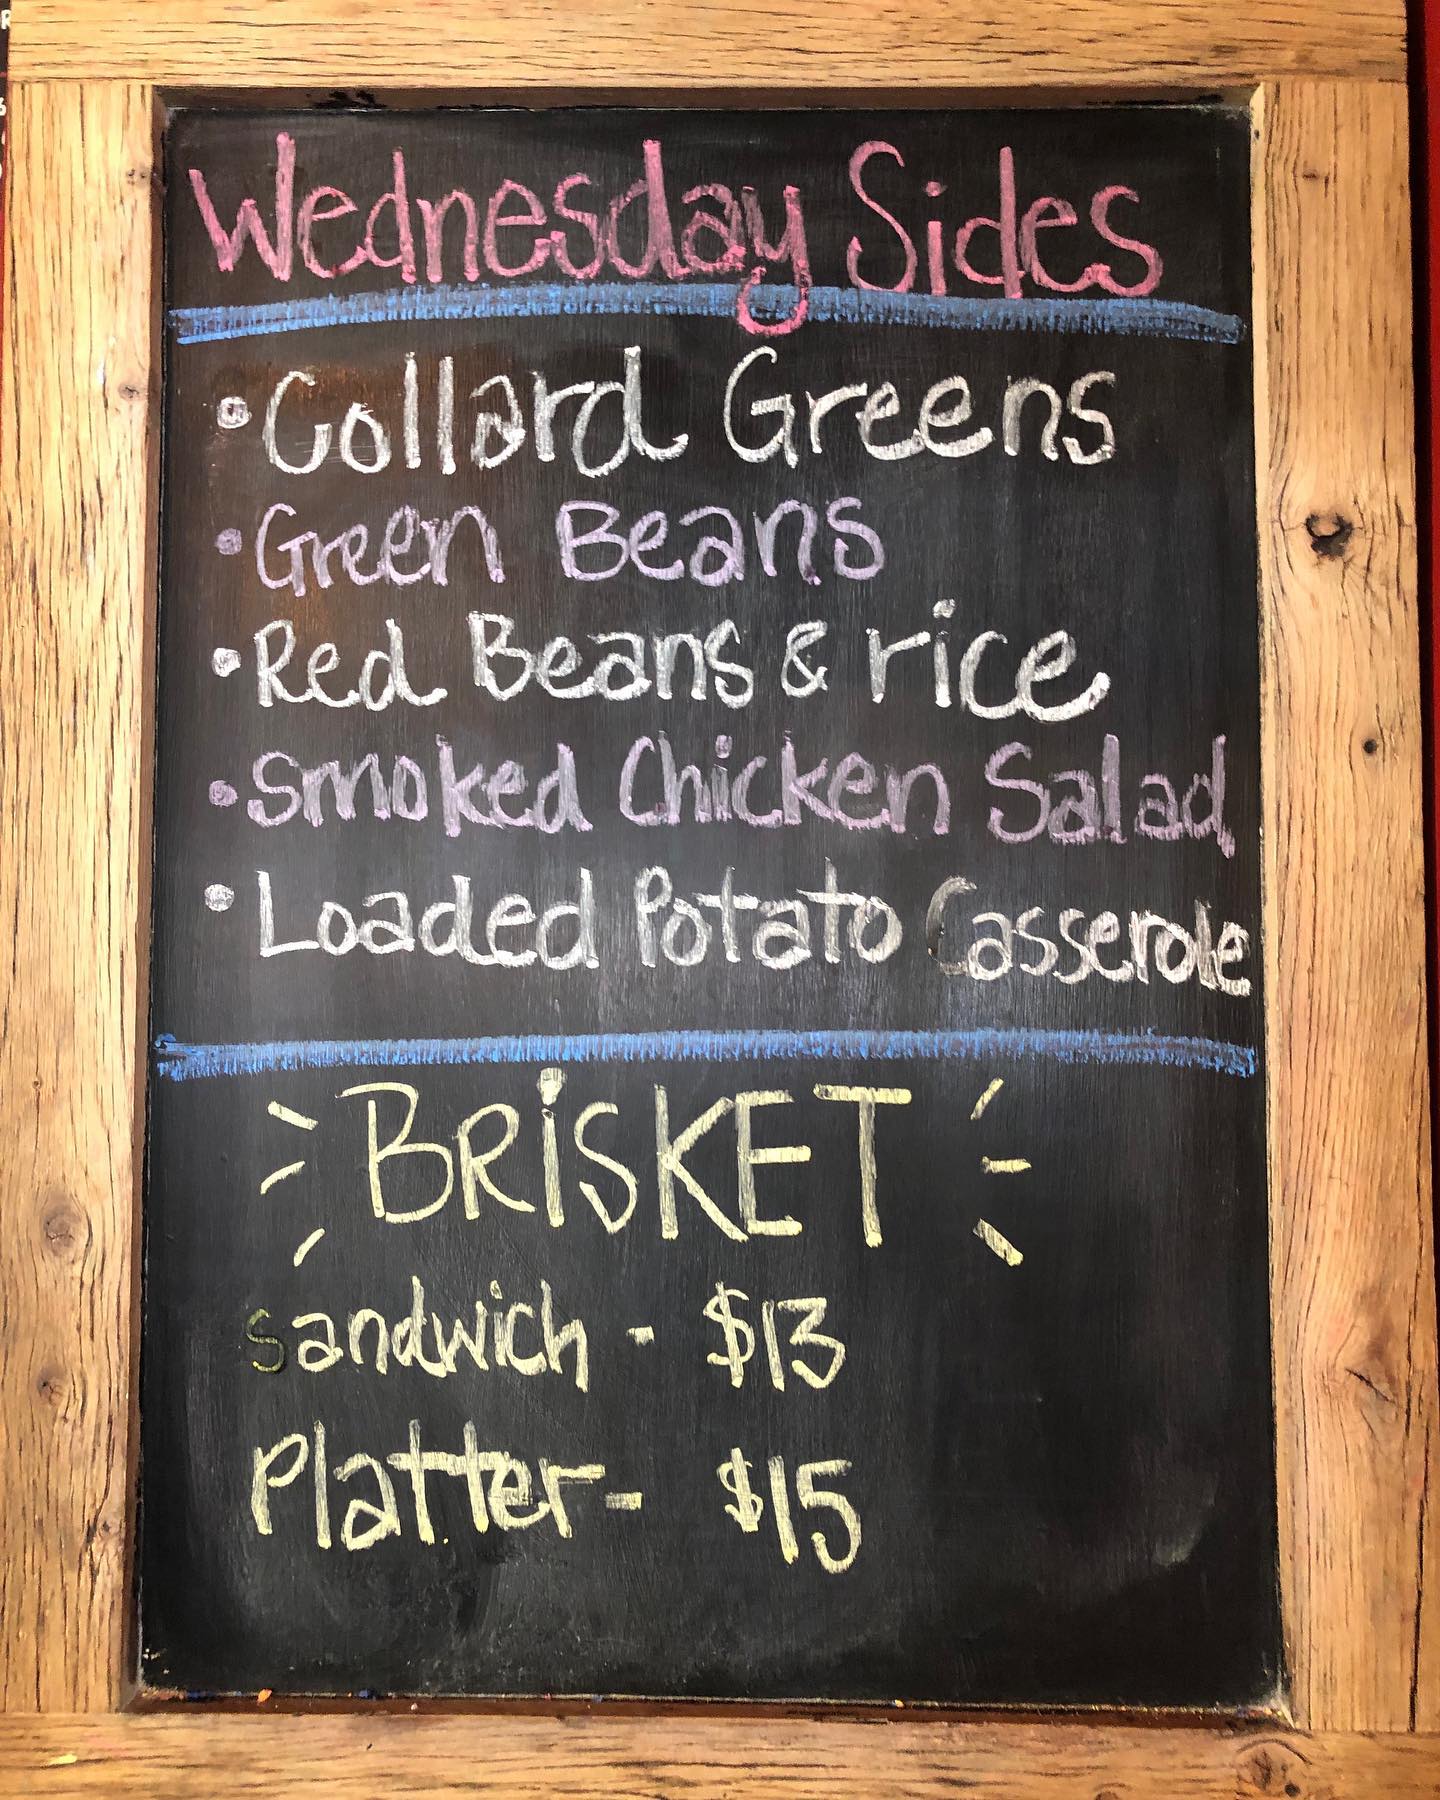 Wednesday Sides
• Collard Greens
• Green Beans
• Red Beans & rice
• Smoked Chicken Salad
• Loaded Potato Casserole
BRiSKET
Sandwich - $13
Platter - $15